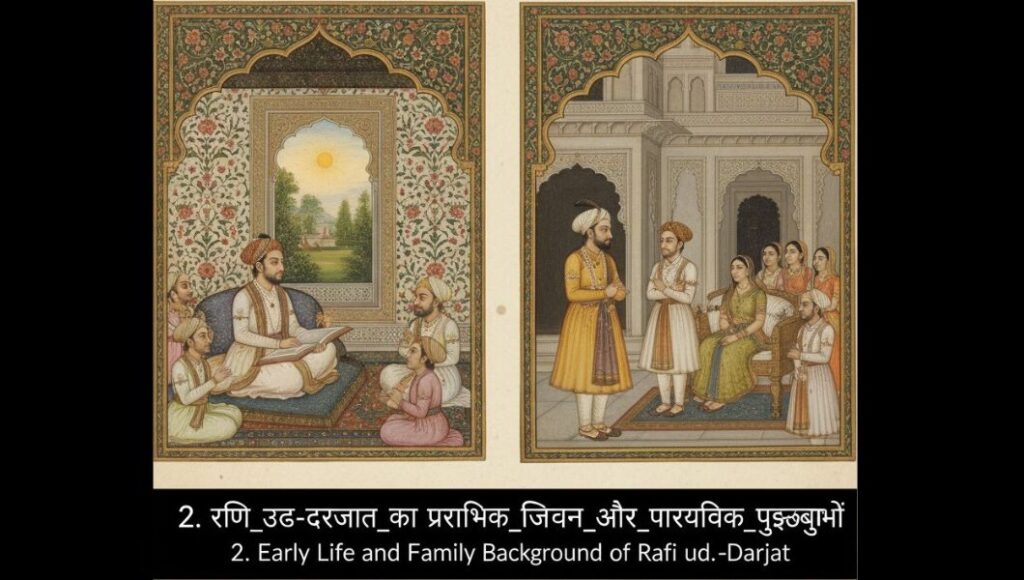 2. रणि_उढ-दरजात_का प्रराभिक_जिवन_और_पारयविक
2. Early Life and Family Background of Rafi ud.-Darjat